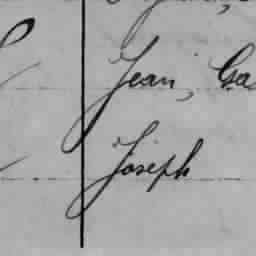 Jean, Ga
Joseph